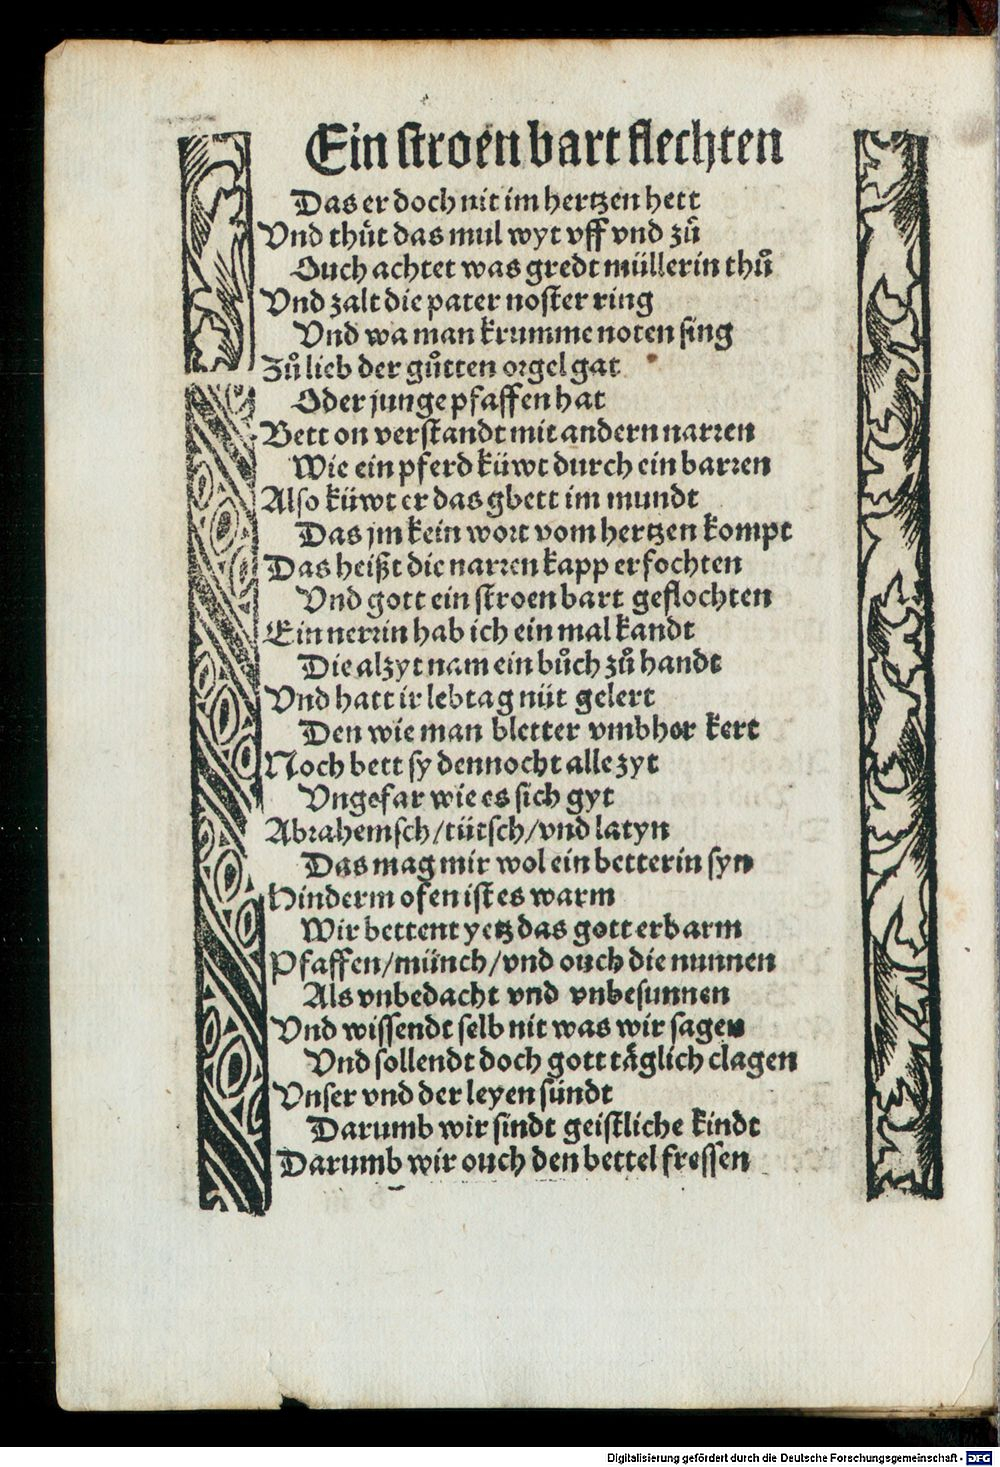 Ein stroen bart flechten
Das er doch nit im hertzen hett
Vnd thuͤt das mul wyt vff vnd zuͤ
Ouch achtet was gredt müllerin thuͦ
Vnd zalt die pater noster ring
Vnd wa man krumme noten sing
Zuͦ lieb der guͦtten orgel gat
Oder junge pfaffen hat
Bett on verstandt mit andern narren
Wie ein pferd küwt durch ein barren
Also küwt er das gbett im mundt
Das jm kein wort vom hertzen kompt
Das heißt die narren kapp erfochten
Vnd gott ein stroen bart geflochten
Ein nerrin hab ich ein mal kandt
Die alzyt nam ein buͦch zuͦ handt
Vnd hatt ir lebtag nüt gelert
Den wie man bletter vmbher kert
Noch bett sy dennocht alle zyt
Vngefar wie es sich gyt
Abrahemsch/tütsch/vnd latyn
Das mag mir wol ein betterin syn
Hinderm ofen ist es warm
Wir bettent yetz das gott erbarm
Pfaffen/münch/vnd ouch die nunnen
Als vnbedacht vnd vnbesunnen
Vnd wissendt selb nit was wir sagen
Vnd sollendt doch gott täglich clagen
Vnser vnd der leyen sündt
Darumb wir sindt geistliche kindt
Darumb wir ouch den bettel fressen
Digitalisierung gefördert durch die Deutsche Forschungsgemeinschaft - DFG